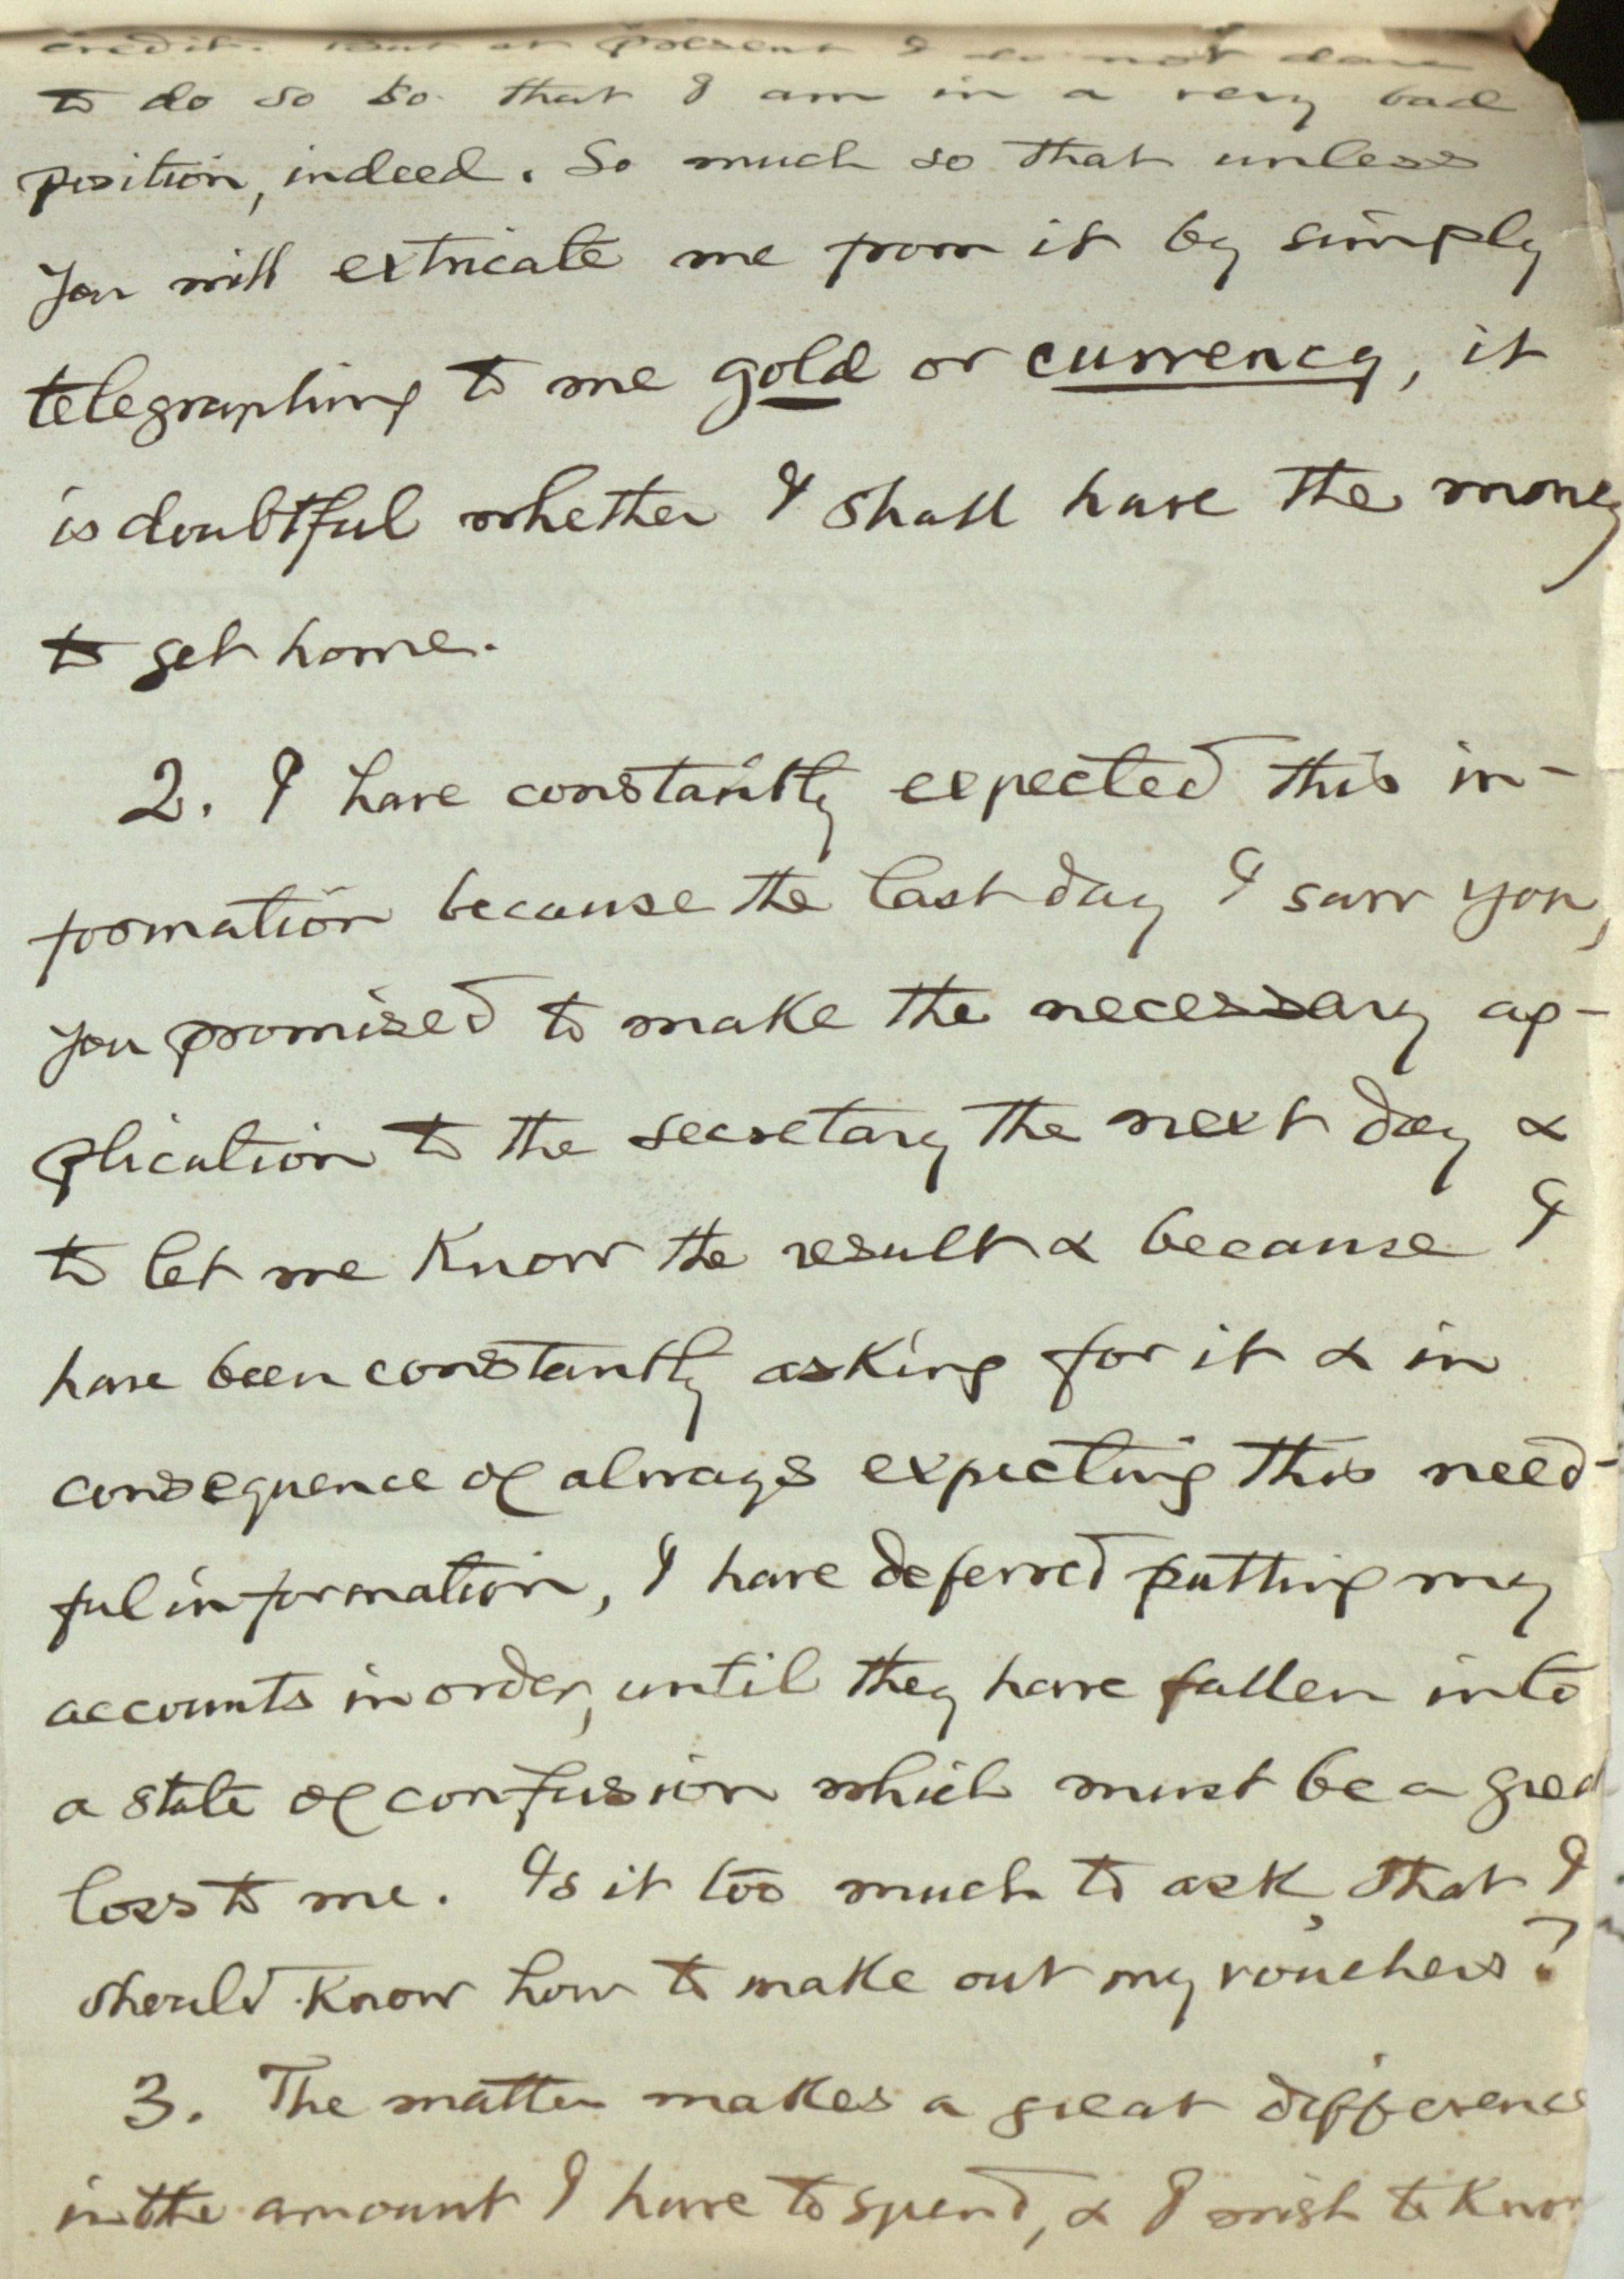 credit. But at present I do not dare
to do so so that I am in a very bad
position, indeed. So much so that unless
you will extricate me from it by simply
telegraphing to me gold or currency, it
is doubtful whether I shall have the money
to get home.
2. I have constantly expected this in-
formation because the last day I saw you,
you promised to make the necessary ap-
plication to the secretary the next day &
to let me know the result & because I
have been constantly asking for it & in
consequence of always expecting this need-
ful information, I have deferred putting my
accounts in order, until they have fallen into
a state of confusion which must be a great
loss to me. Is it too much to ask, that I
should know how to make out my vouchers?
3. The matter makes a great difference
in the amount I have to spend, & I wish to know